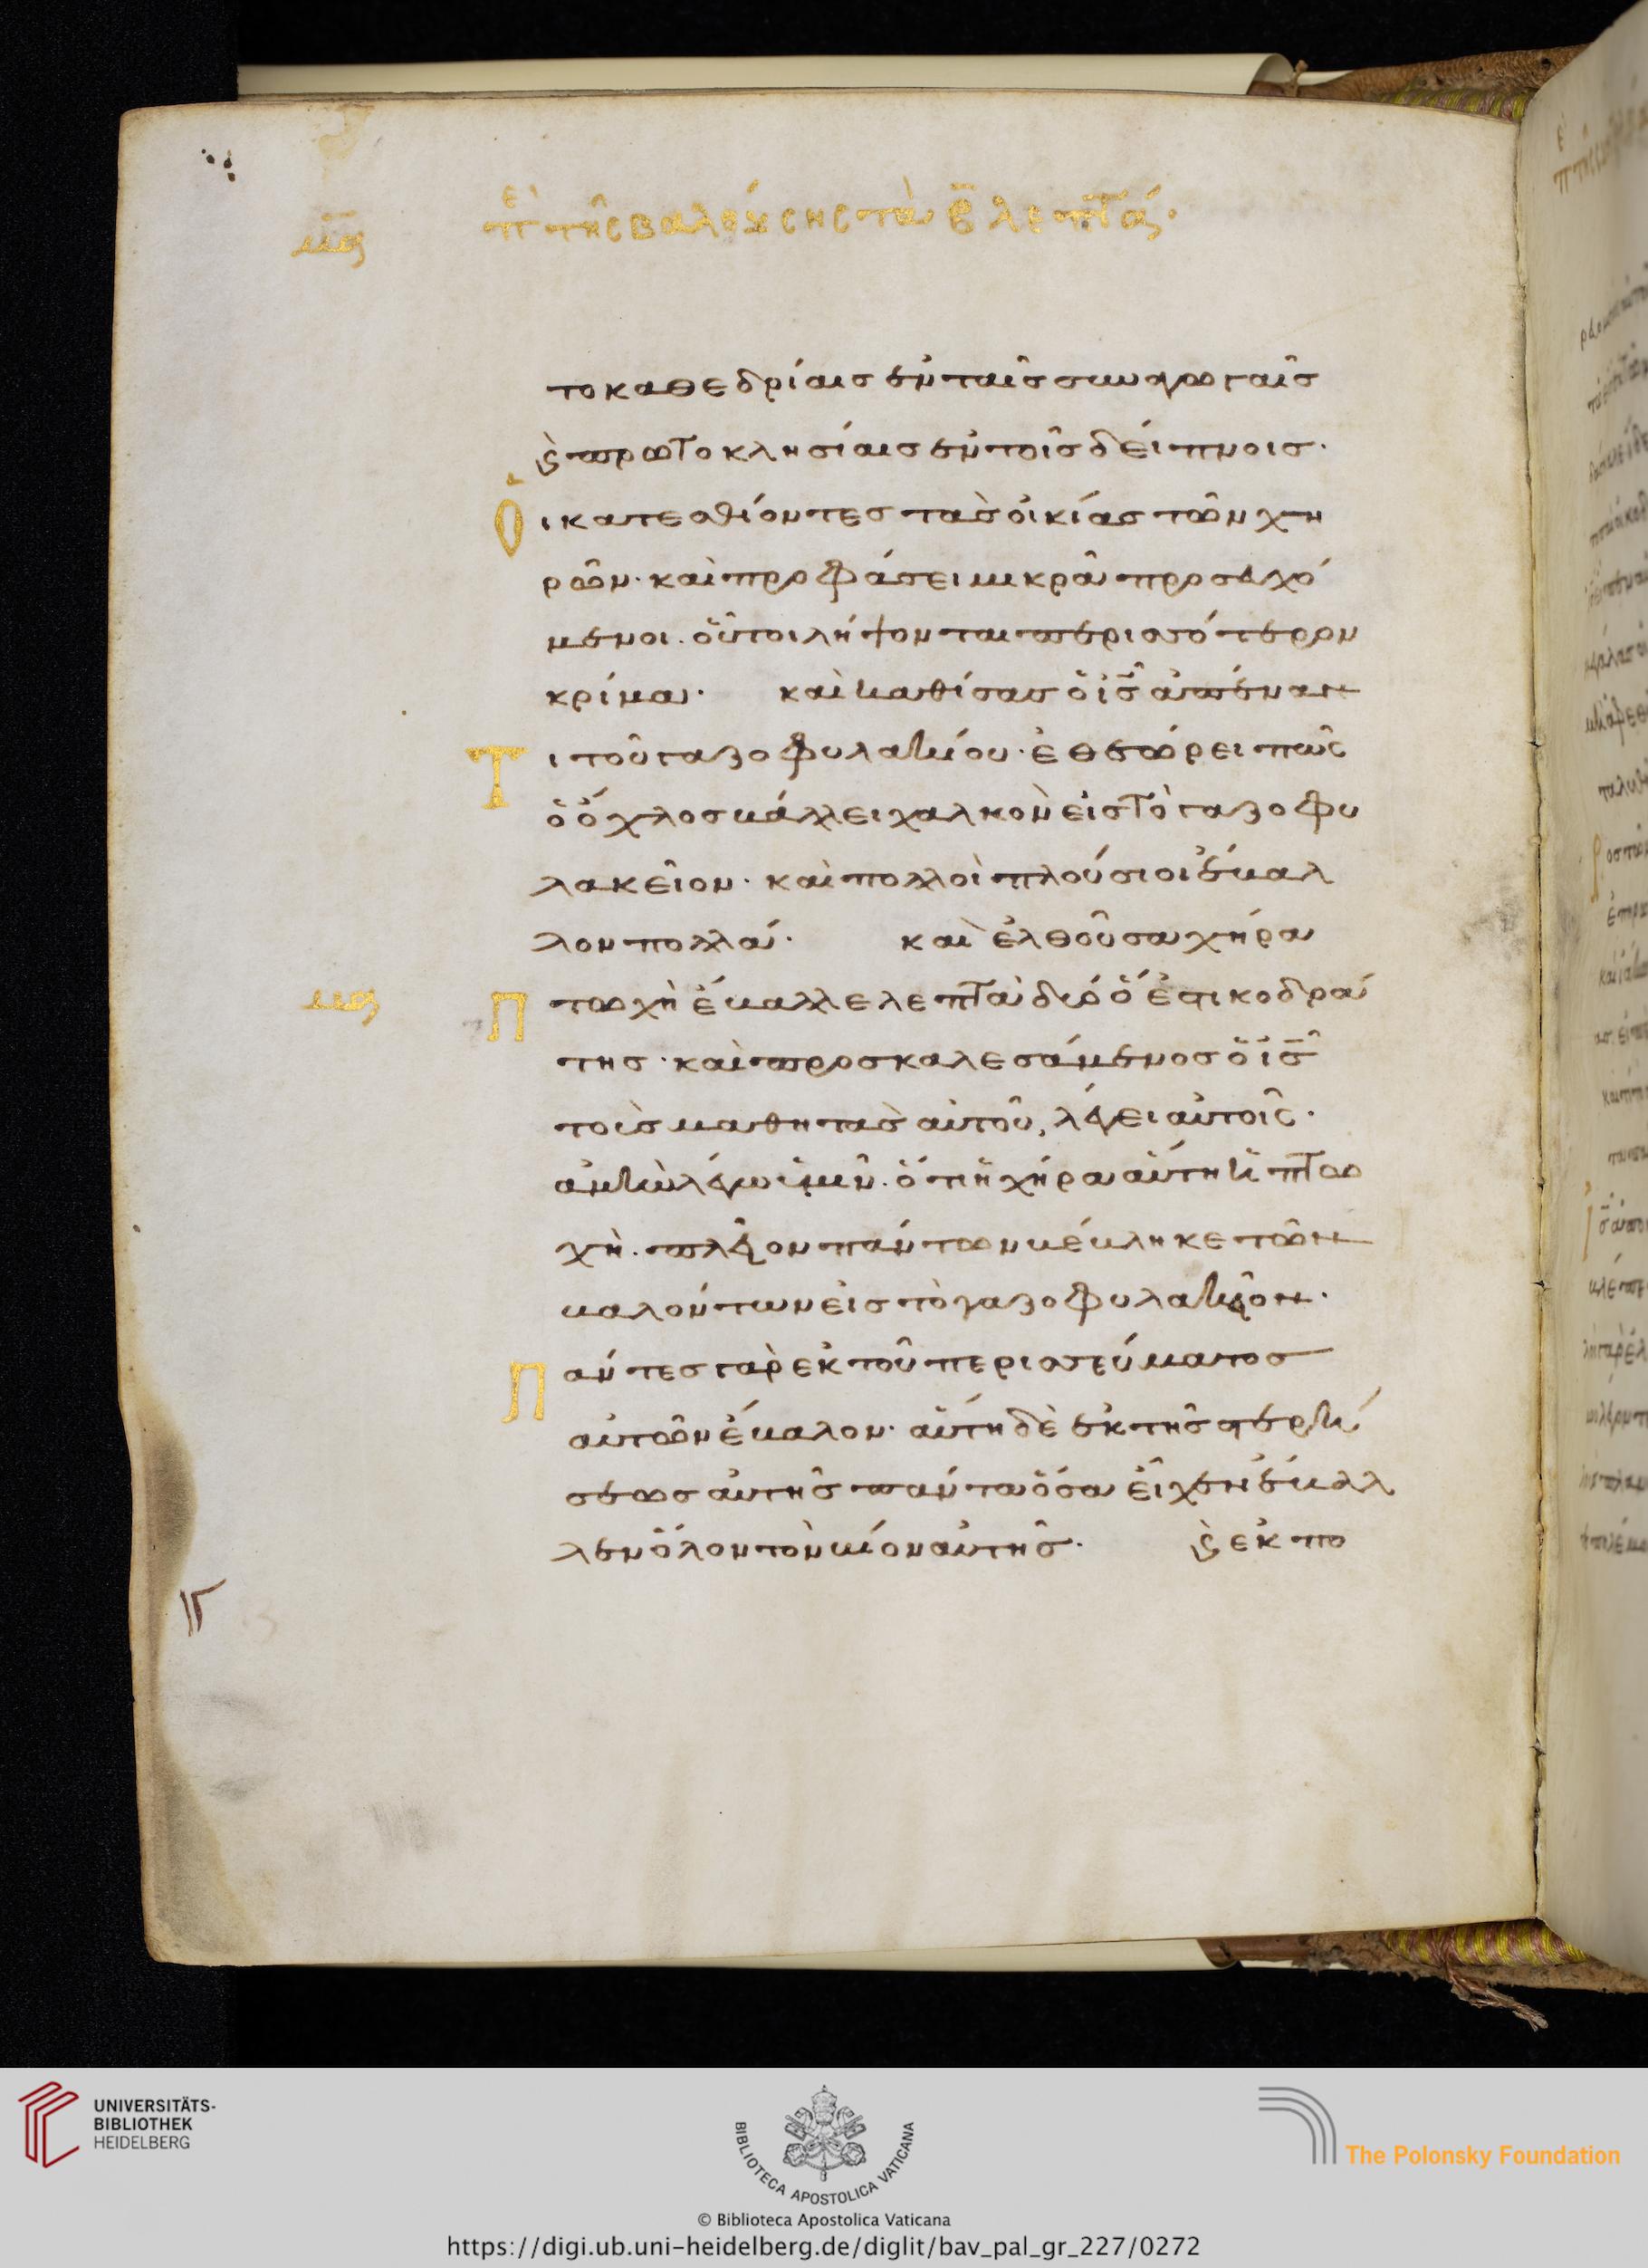 μς πὲ τῆς βαλούσης τὰ β λεπτά·
τοκαθεδρίαις ἐν ταῖς συναγωγαῖς
ϗ πρωτοκλησίαις ἐν τοῖς δείπνοις·
Οἱ κατεσθίοντες τὰς οἰκίας τῶν χη
ρῶν· καὶ προφάσει μικρᾶ προσευχό
μενοι. οὗτοι λήψονται περισσότερον
κρίμα· καὶ καθίσας ὁ ις ἀπέναν
Τι τοῦ γαζοφυλακίου· ἐθεώρει πῶς
ὁ ὄχλος βάλλει χαλκὸν εἰς τὸ γαζοφυ
λακεῖον· καὶ πολλοὶ πλούσιοι ἔβαλ
λον πολλά· καὶ ἐλθοῦσα χήρα
μς Πτωχὴ ἔβαλλε λεπτὰ δύο ὅ ἐστι κοδρά
της· καὶ προσκαλεσάμενος ὁ ις
τοὺς μαθητὰς αὐτοῦ, λέγει αὐτοῖς·
ἀμὴν λέγω ὑμῖν. ὅτι ἡ χήρα αὕτη ἡ πτω
χὴ. πλεῖον πάντων βέβληκε τῶν
βαλόντων εἰς τὸ γαζοφυλακεῖον·
Πάντες γὰρ ἐκ τοῦ περισσεύματος
αὐτῶν ἔβαλον· αὕτη δὲ ἐκ τῆς ὑστερή
σεως αὐτῆς πάντα ὅσα εἶχεν ἔβαλ
λεν ὅλον τὸν βίον αὐτῆς· ϗ ἐκ πο
UNIVERSITÄTS-
BIBLIOTHEK
HEIDELBERG
BIBLIOTECA APOSTOLICA VATICANA
© Biblioteca Apostolica Vaticana
The Polonsky Foundation
https://digi.ub.uni-heidelberg.de/diglit/bav_pal_gr_227/0272